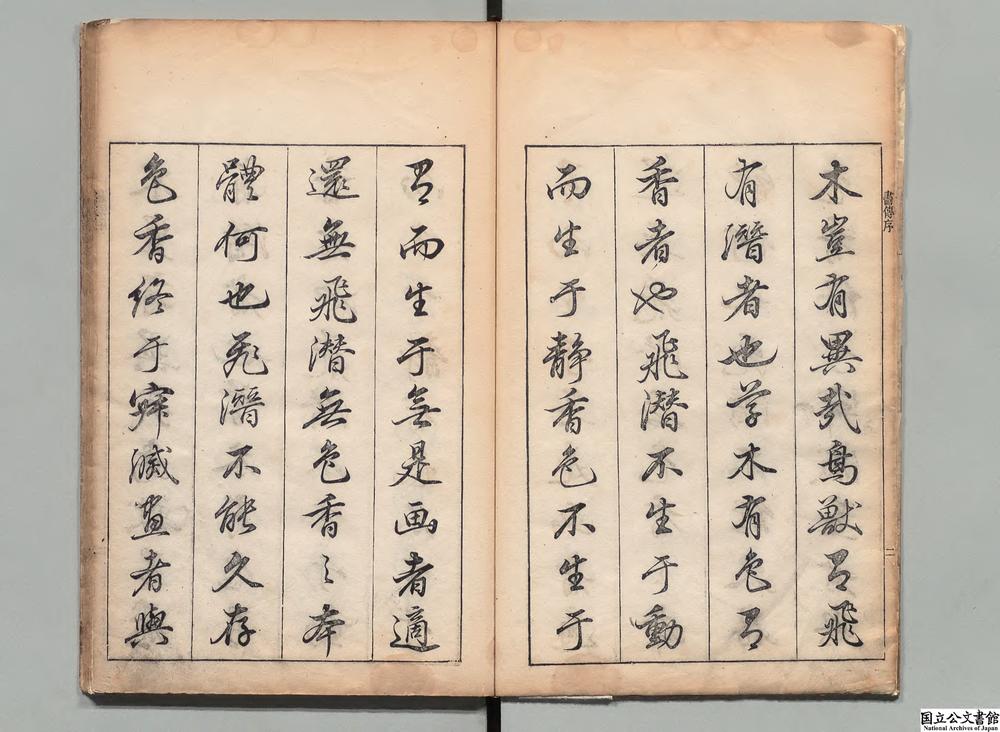 木豈有異哉鳥獸有飛
有潛者也草木有色有
香者也飛潛不生于動
而生于靜香色不生于
有而生于無是画者適
還無飛潛無色香之本
體何也飛潛不能久存
色香終于寂滅畫者與
書傳序
二
国立公文書館
National Archives of Japan